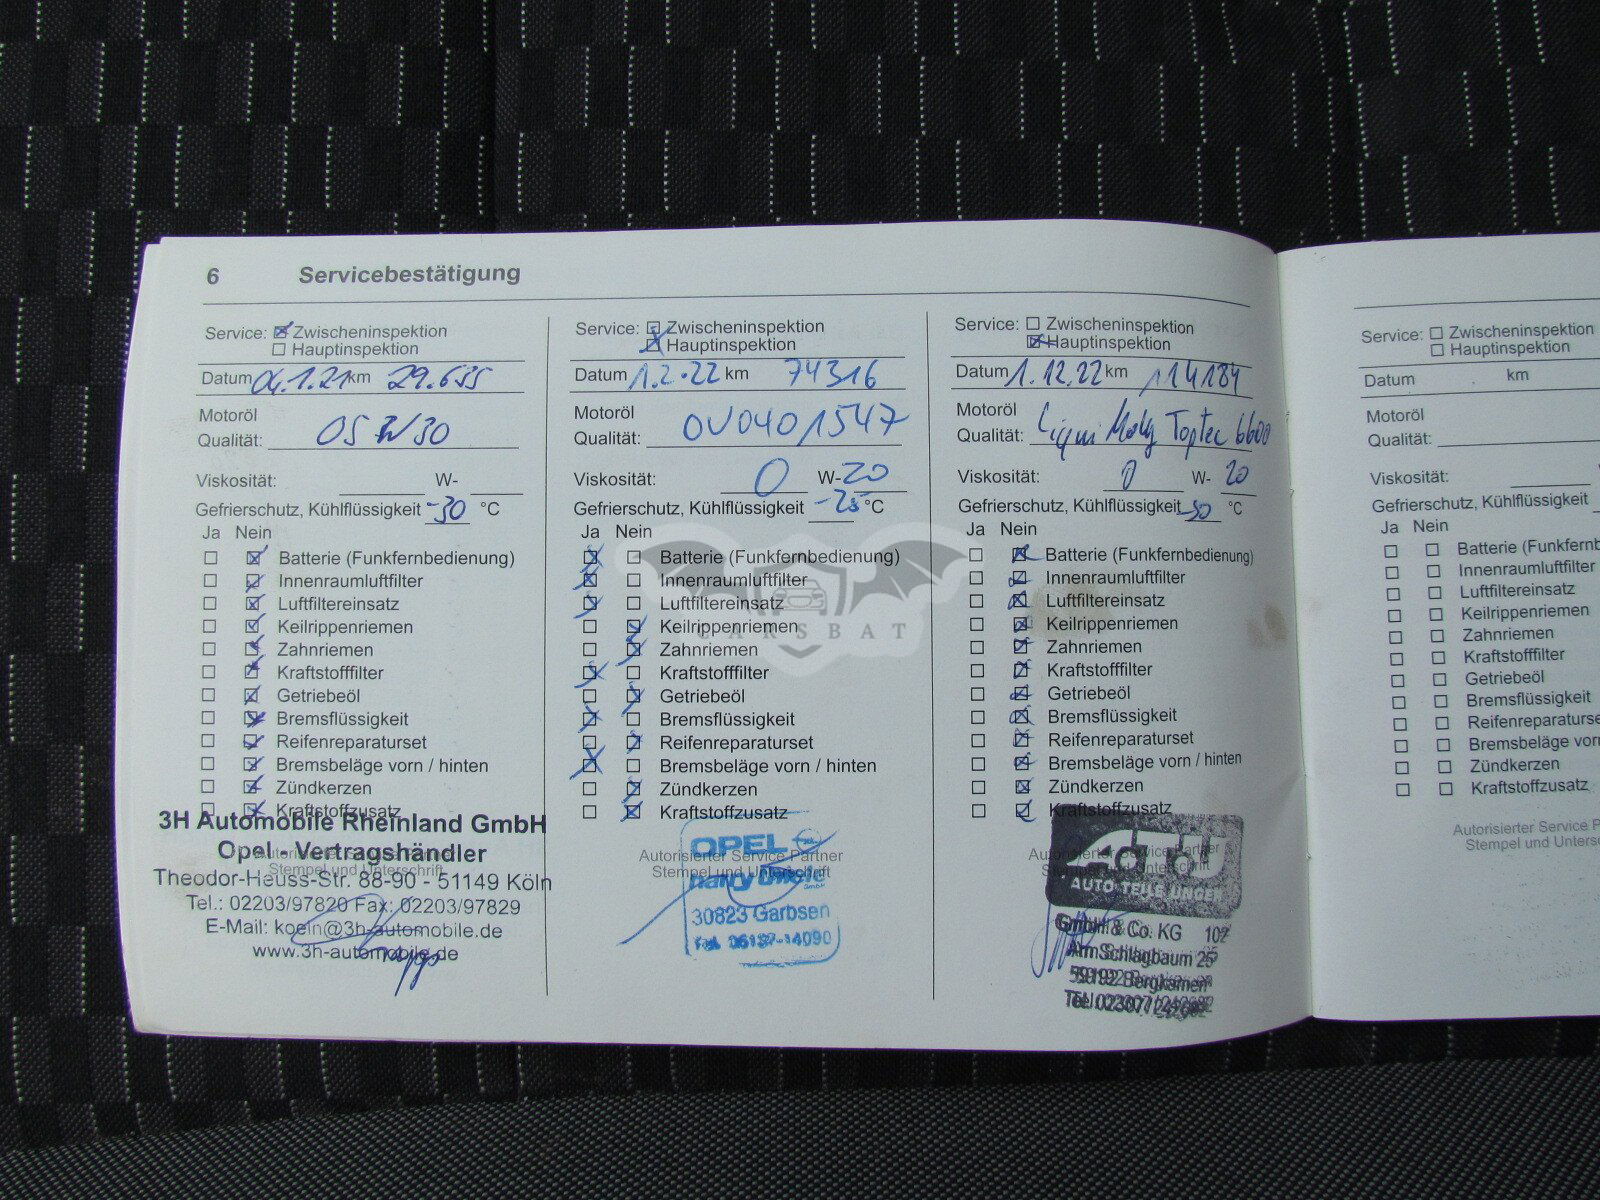 6 Servicebestätigung
Service: Zwischeninspektion
Hauptinspektion
Datum 04.1.21 km 29.635
Motoröl
Qualität:
Viskosität: W-
Gefrierschutz, Kühlflüssigkeit -30 °C
Ja Nein
Batterie (Funkfernbedienung)
Innenraumluftfilter
Luftfiltereinsatz
Keilrippenriemen
Zahnriemen
Kraftstofffilter
Getriebeöl
Bremsflüssigkeit
Reifenreparaturset
Bremsbeläge vorn / hinten
Zündkerzen
Kraftstoffzusatz
3H Automobile Rheinland GmbH
Opel - Vertragshändler
Stempel und Unterschrift
Theodor-Heuss-Str. 88-90 - 51149 Köln
Tel.: 02203/97820 Fax: 02203/97829
E-Mail: koeln@3h-automobile.de
www.3h-automobile.de
Service: Zwischeninspektion
Hauptinspektion
Datum 1.2.22 km 74316
Motoröl
Qualität: OV0401547
Viskosität: 0 W-20
Gefrierschutz, Kühlflüssigkeit -25 °C
Ja Nein
Batterie (Funkfernbedienung)
Innenraumluftfilter
Luftfiltereinsatz
Keilrippenriemen
Zahnriemen
Kraftstofffilter
Getriebeöl
Bremsflüssigkeit
Reifenreparaturset
Bremsbeläge vorn / hinten
Zündkerzen
Kraftstoffzusatz
OPEL
Autorisierter Service Partner
Stempel und Unterschrift
30823 Garbsen
Tel. 05137-14090
Service: Zwischeninspektion
Hauptinspektion
Datum 1.12.22 km 114184
Motoröl
Qualität: Liqui Moly Toptec 6600
Viskosität: 0 W- 20
Gefrierschutz, Kühlflüssigkeit -30 °C
Ja Nein
Batterie (Funkfernbedienung)
Innenraumluftfilter
Luftfiltereinsatz
Keilrippenriemen
Zahnriemen
Kraftstofffilter
Getriebeöl
Bremsflüssigkeit
Reifenreparaturset
Bremsbeläge vorn / hinten
Zündkerzen
Kraftstoffzusatz
GmbH & Co. KG 102
Am Schlagbaum 25
59192 Bergkamen
CARSBAT
Service: Zwischeninspektion
Hauptinspektion
Datum km
Motoröl
Qualität:
Viskosität:
Gefrierschutz, Kühlflüssigkeit
Ja Nein
Batterie (Funkfernb
Innenraumluftfilter
Luftfiltereinsatz
Keilrippenriemen
Zahnriemen
Kraftstofffilter
Getriebeöl
Bremsflüssigkeit
Reifenreparaturse
Bremsbeläge vor
Zündkerzen
Kraftstoffzusatz
Autorisierter Service P
Stempel und Unters